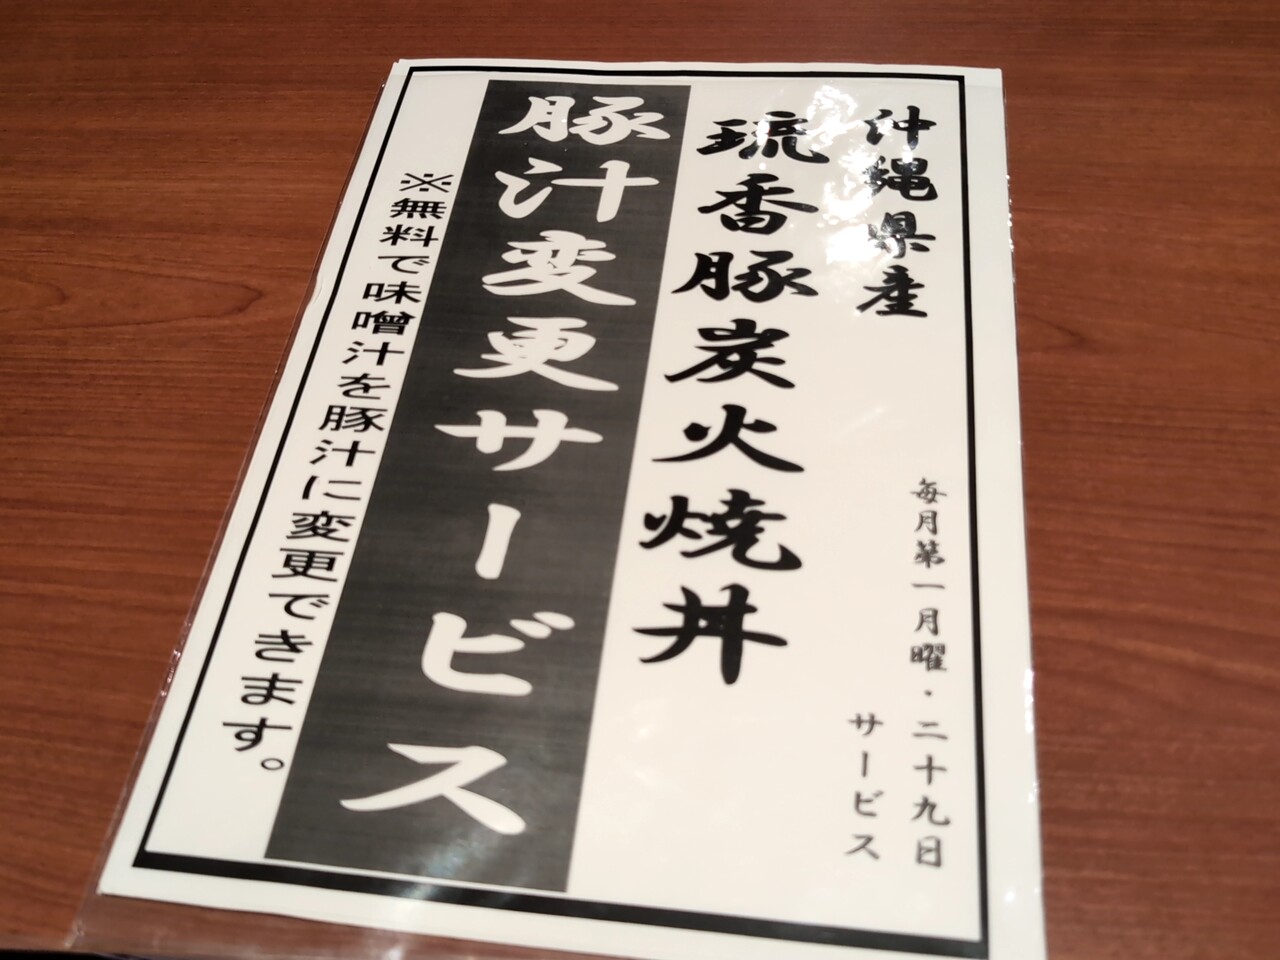 沖縄県産
毎月第一月曜・二十九日
サービス
琉香豚炭火焼丼
豚汁変更サービス
※無料で味噌汁を豚汁に変更できます。